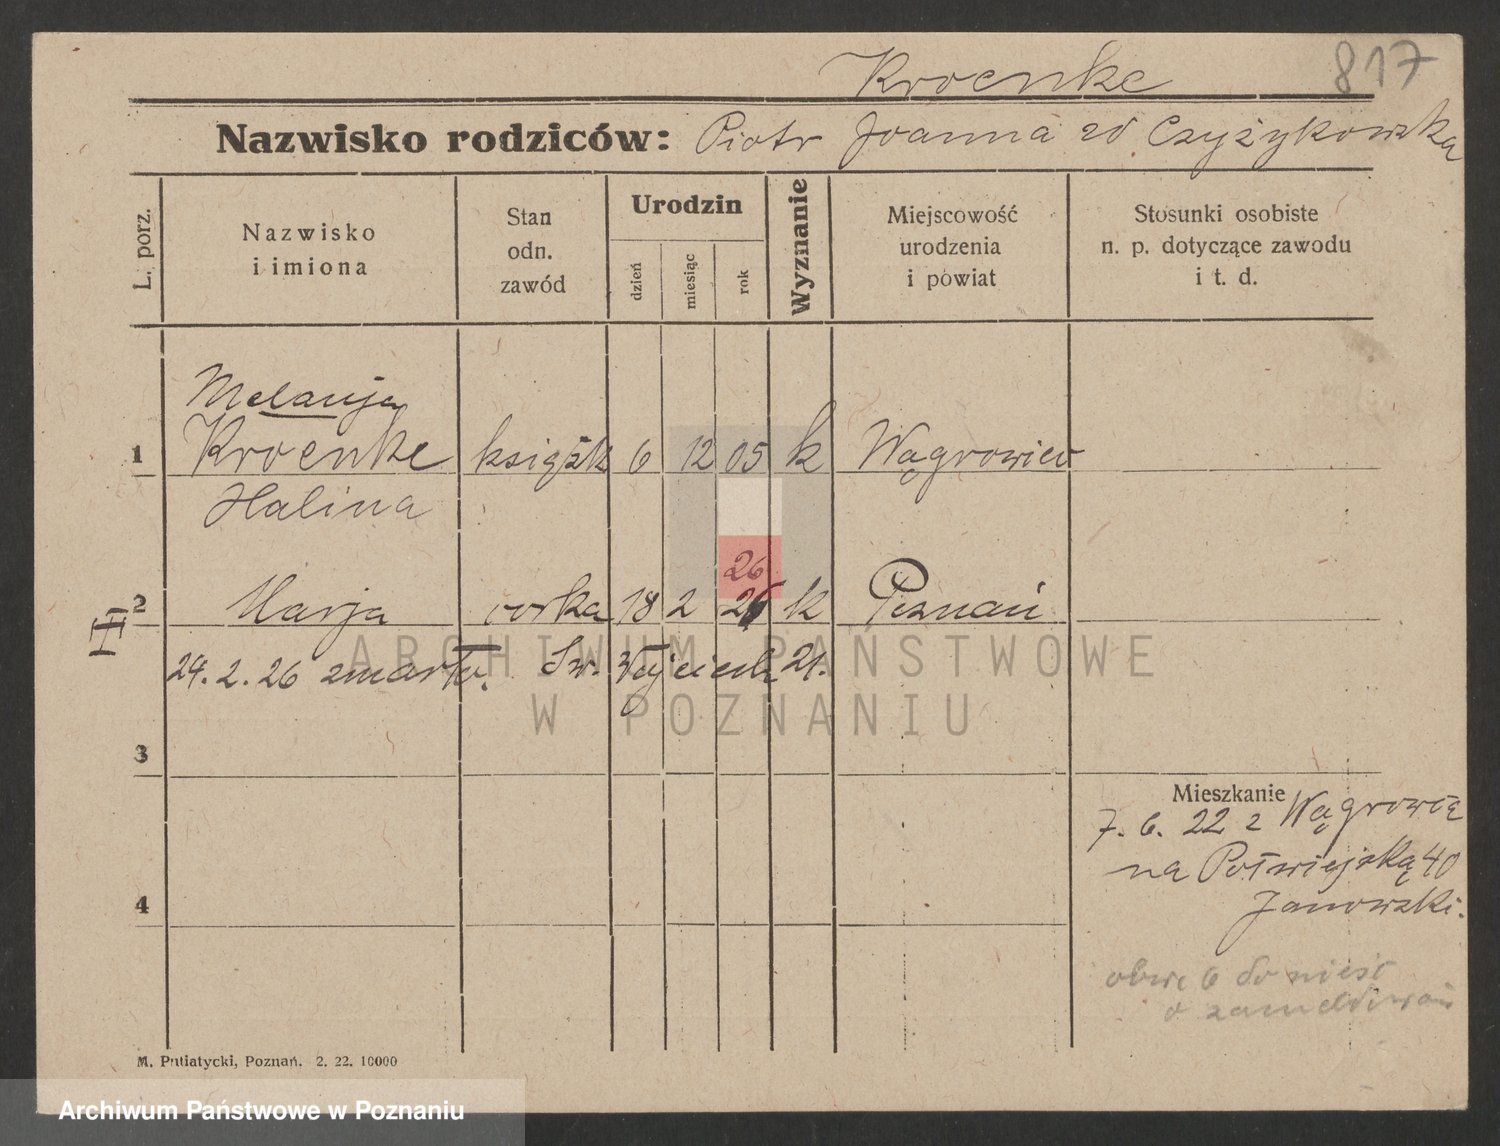 Kroenke 817
Nazwisko rodziców: Piotr Joanna zd Czyżykowska
L. porz.
Nazwisko
i imiona
Stan
odn.
zawód
Urodzin
dzień
miesiąc
rok
Wyznanie
Miejscowość
urodzenia
i powiat
Stosunki osobiste
n. p. dotyczące zawodu
i t. d.
Melanja
1 Kroenke książk 6 12 05 k Wągrowiec
Halina
26
2 Marja córka 18 2 k Poznań
II
24. 2. 26 zmarła. Św. Wojciech 21.
3
Mieszkanie
7. 6. 22 z Wągrowca
na Półwiejską 40
4
Janowski.
do nieść
o zameldowan
M. Putiatycki, Poznań. 2. 22. 10000
ARCHIWUM PAŃSTWOWE
W POZNANIU
Archiwum Państwowe w Poznaniu